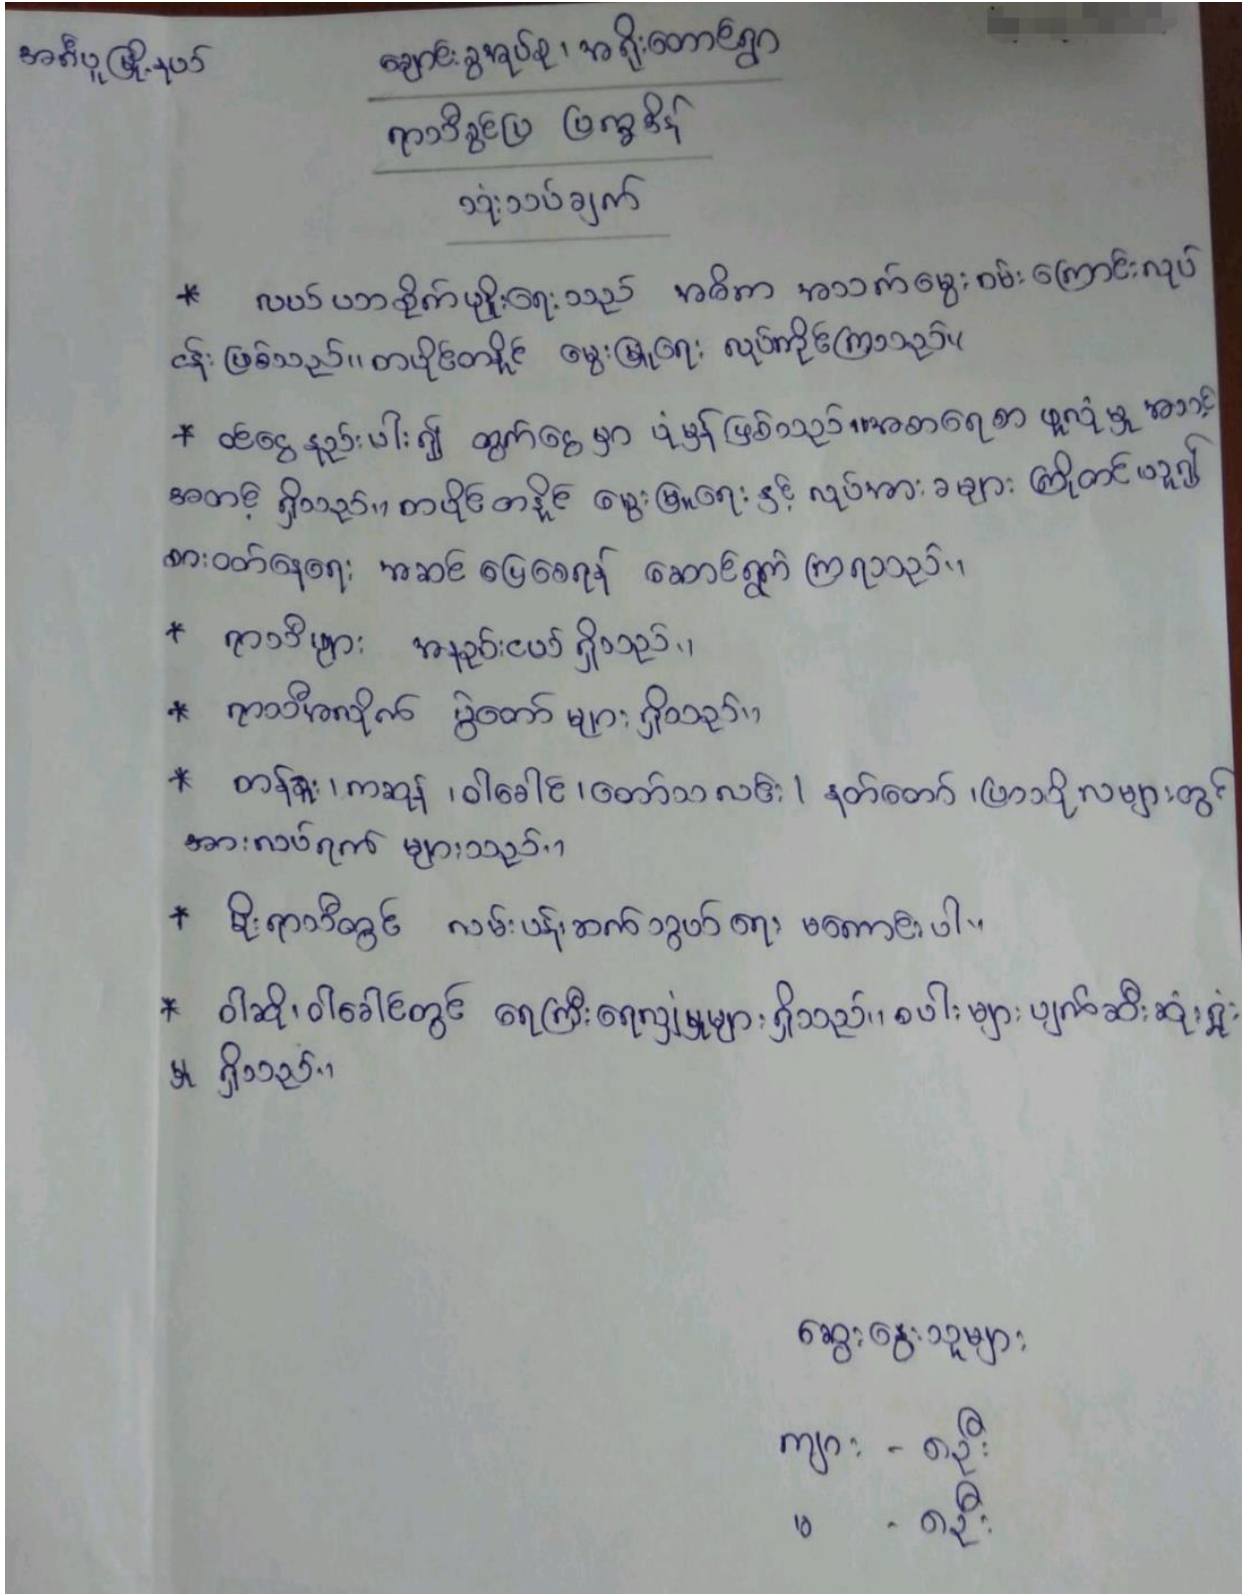 အင်္ဂပူမြို့နယ်
ချောင်းခွအုပ်စု၊ အရိုးတောင်ရွာ
ရာသီခွင်ပြ ပြက္ခဒိန်
သုံးသပ်ချက်
* လယ်ယာစိုက်ပျိုးရေးသည် အဓိက အသက်မွေးဝမ်းကြောင်းလုပ်
ငန်းဖြစ်သည်။ တပိုင်တနိုင် မွေးမြူရေး လုပ်ကိုင်ကြသည်။
* ဝင်ငွေနည်းပါး၍ ထွက်ငွေမှာ ပုံမှန်ဖြစ်သည်။ အစာရေစာ ဖူလုံမှု အသင့်
အတင့် ရှိသည်။ တပိုင်တနိုင် မွေးမြူရေးနှင့် လုပ်အားခများ ကြိုတင်ယူ၍
စားဝတ်နေရေး အဆင်ပြေစေရန် ဆောင်ရွက်ကြရသည်။
* ရာသီဖျား အနည်းငယ်ရှိသည်။
* ရာသီအလိုက် ပွဲတော်များရှိသည်။
* တန်ခူး၊ ကဆုန်၊ ဝါခေါင်၊ တော်သလင်း၊ နတ်တော်၊ ပြာသိုလများတွင်
အားလပ်ရက် များသည်။
* မိုးရာသီတွင် လမ်းပန်းဆက်သွယ်ရေး မကောင်းပါ။
* ဝါဆို၊ ဝါခေါင်တွင် ရေကြီးရေလျှံမှုများရှိသည်။ စပါးများပျက်ဆီးဆုံးရှုံး
မှု ရှိသည်။
ဆွေးနွေးသူများ
ကျား - ၈ဦး
မ - ၈ဦး